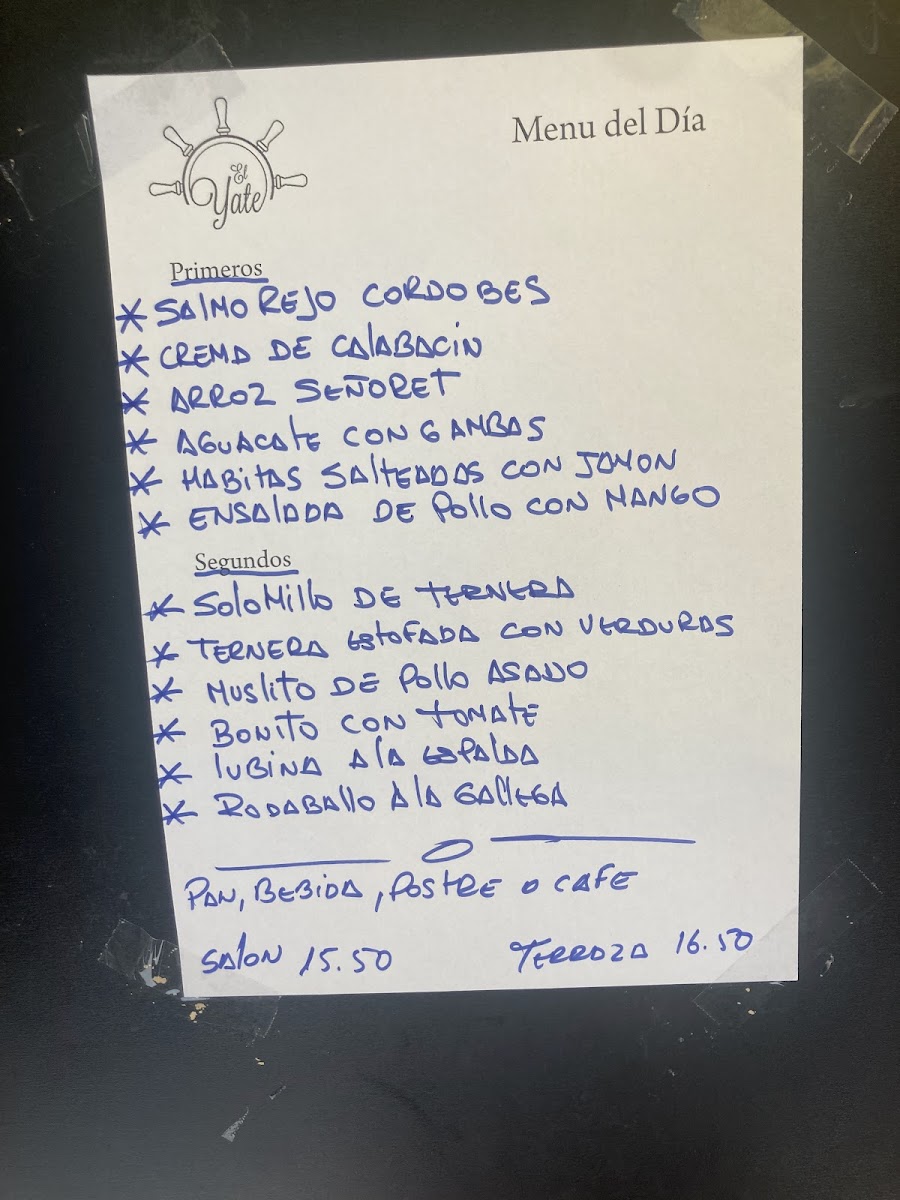 El
Yate
Menu del Día
Primeros
* SALMOREJO CORDOBES
* CREMA DE CALABACIN
* ARROZ SEÑORET
* AGUACATE CON GAMBAS
* HABITAS SALTEADAS CON JAMON
* ENSALADA DE POLLO CON MANGO
Segundos
* SOLOMILLO DE TERNERA
* TERNERA ESTOFADA CON VERDURAS
* MUSLITO DE POLLO ASADO
* BONITO CON TOMATE
* LUBINA A LA ESPALDA
* RODABALLO A LA GALLEGA
PAN, BEBIDA, POSTRE O CAFE
SALON 15.50 TERRAZA 16.50